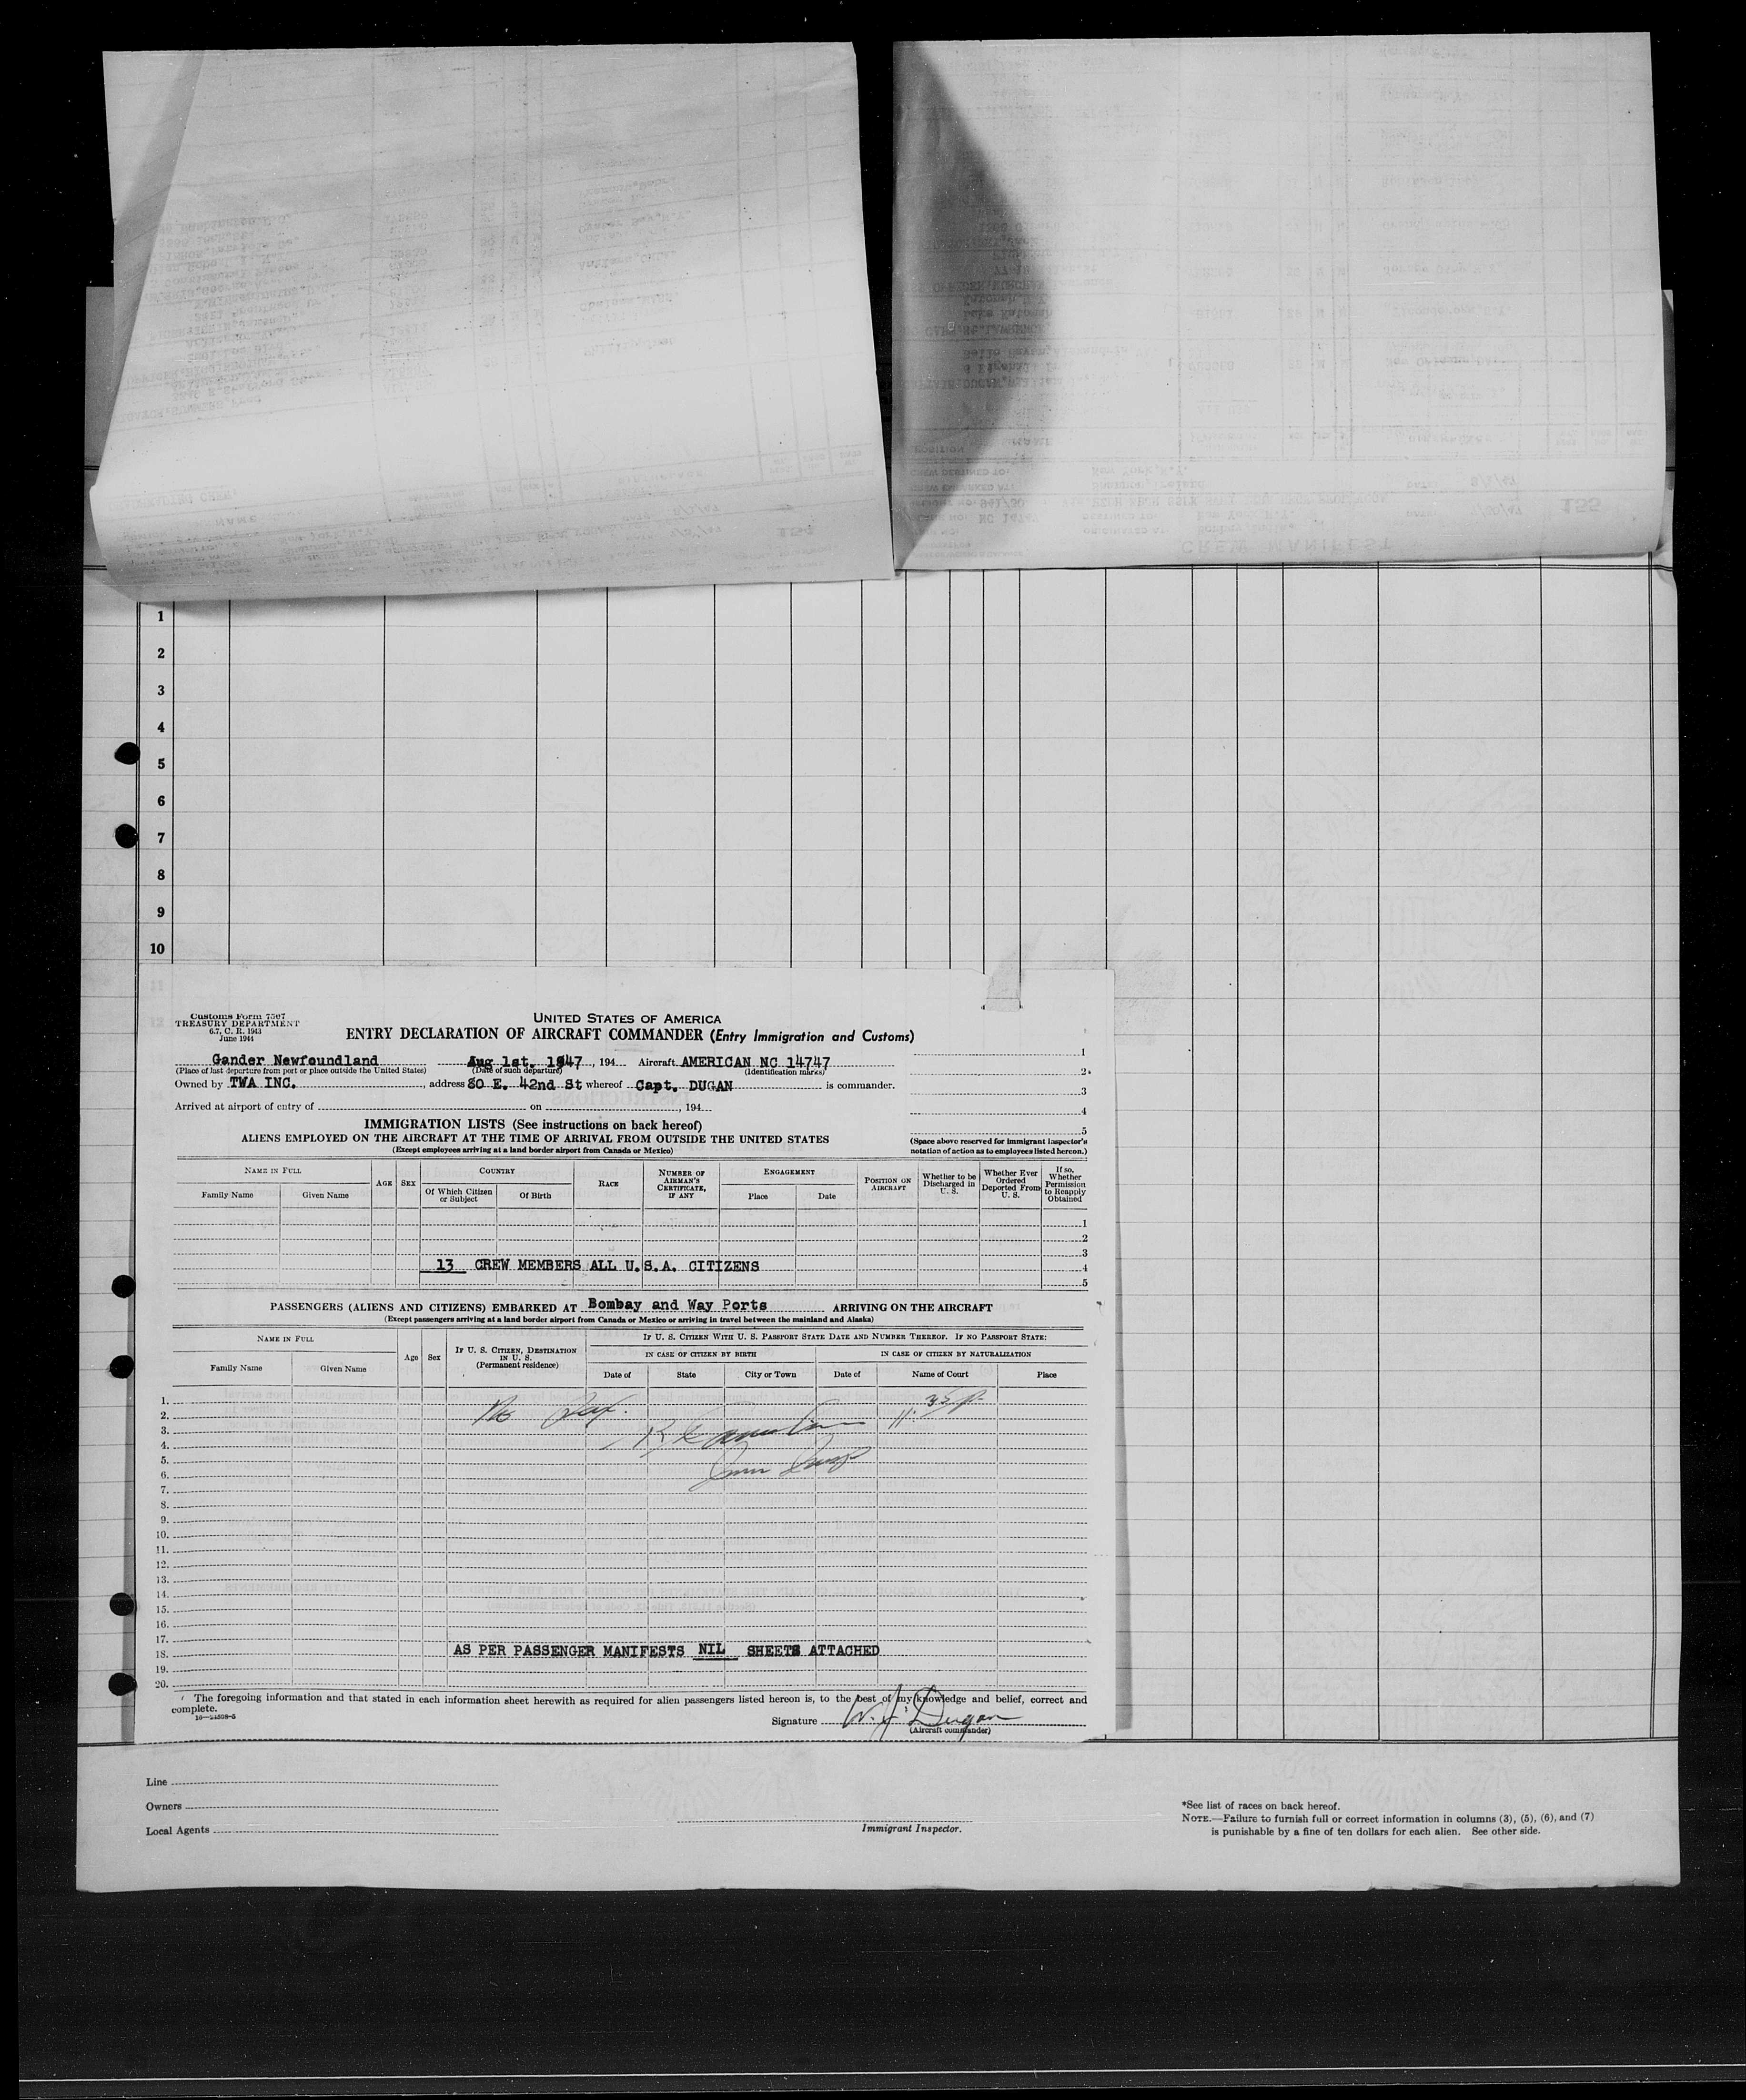 1
2
3
4
5
6
7
8
9
10
Customs Form 7507
TREASURY DEPARTMENT
6.7, C. R. 1943
June 1944
UNITED STATES OF AMERICA
ENTRY DECLARATION OF AIRCRAFT COMMANDER (Entry Immigration and Customs)
Gander Newfoundland Aug 1st. 1947, 194 Aircraft AMERICAN NC 14747
(Place of last departure from port or place outside the United States) (Date of such departure) (Identification marks)
Owned by TWA INC., address 80 E. 42nd St whereof Capt. DUGAN is commander.
Arrived at airport of entry of on , 194
1
2
3
4
5
(Space above reserved for immigrant inspector's notation of action as to employees listed hereon.)
IMMIGRATION LISTS (See instructions on back hereof)
ALIENS EMPLOYED ON THE AIRCRAFT AT THE TIME OF ARRIVAL FROM OUTSIDE THE UNITED STATES
(Except employees arriving at a land border airport from Canada or Mexico)
NAME IN FULL
Family Name Given Name
AGE SEX
COUNTRY
Of Which Citizen or Subject Of Birth
RACE
NUMBER OF AIRMAN'S CERTIFICATE, IF ANY
ENGAGEMENT
Place Date
POSITION ON AIRCRAFT
Whether to be Discharged in U. S.
Whether Ever Ordered Deported From U. S.
If so, Whether Permission to Reapply Obtained
1
2
3
13 CREW MEMBERS ALL U.S.A. CITIZENS 4
5
PASSENGERS (ALIENS AND CITIZENS) EMBARKED AT Bombay and Way Ports ARRIVING ON THE AIRCRAFT
(Except passengers arriving at a land border airport from Canada or Mexico or arriving in travel between the mainland and Alaska)
NAME IN FULL
Family Name Given Name
Age Sex
IF U. S. CITIZEN, DESTINATION IN U. S.
(Permanent residence)
IF U. S. CITIZEN WITH U. S. PASSPORT STATE DATE AND NUMBER THEREOF. IF NO PASSPORT STATE:
IN CASE OF CITIZEN BY BIRTH IN CASE OF CITIZEN BY NATURALIZATION
Date of State City or Town Date of Name of Court Place
1.
2. No
3.
4.
5.
6.
7.
8.
9.
10.
11.
12.
13.
14.
15.
16.
17.
18. AS PER PASSENGER MANIFESTS NIL SHEETS ATTACHED
19.
20.
The foregoing information and that stated in each information sheet herewith as required for alien passengers listed hereon is, to the best of my knowledge and belief, correct and
complete.
Signature W. J. Dugan
(Aircraft commander)
Line
Owners
Local Agents
Immigrant Inspector.
*See list of races on back hereof.
NOTE.—Failure to furnish full or correct information in columns (3), (5), (6), and (7)
is punishable by a fine of ten dollars for each alien. See other side.